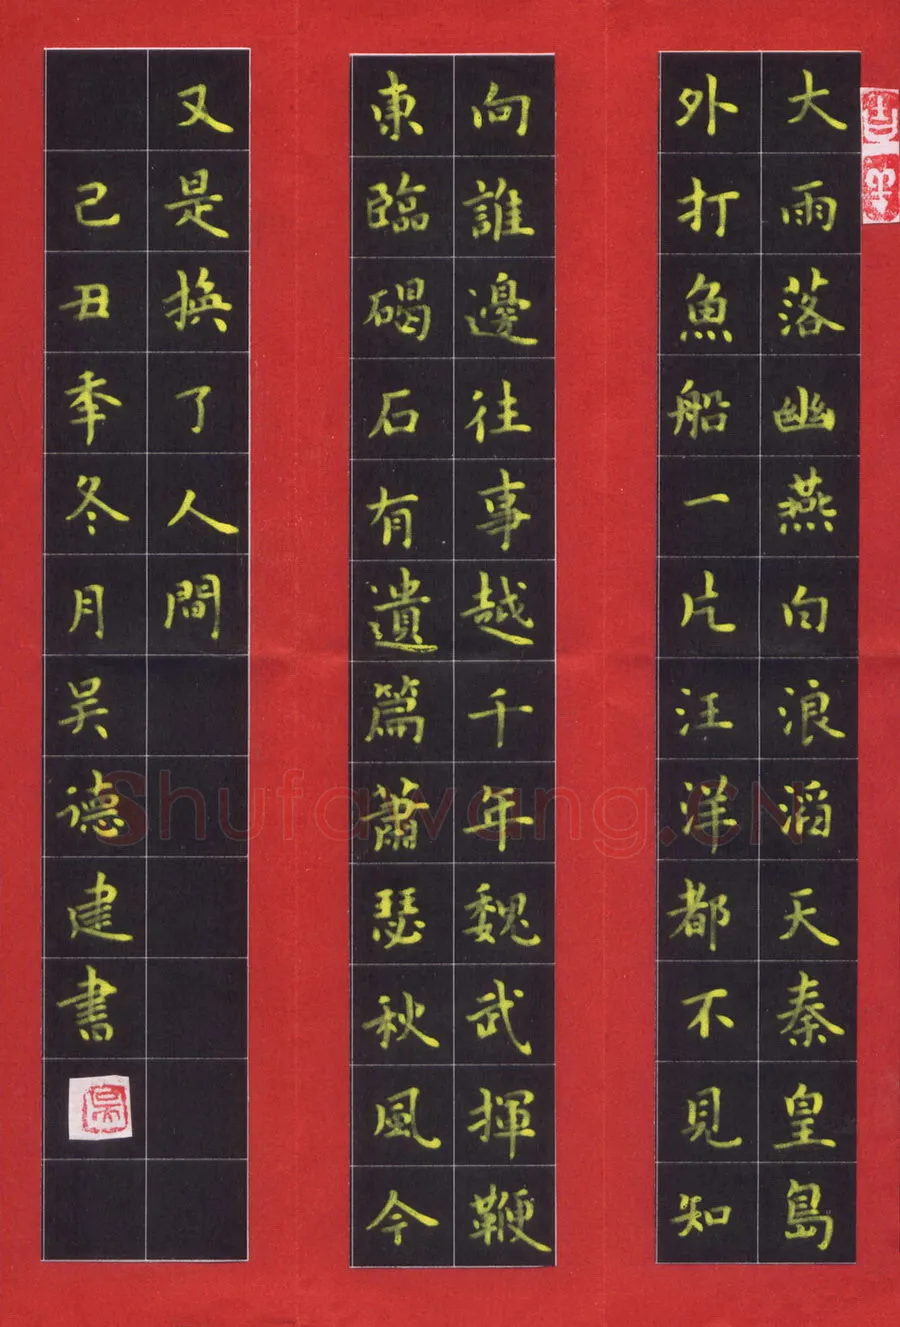 大雨落幽燕白浪滔天秦皇島
外打魚船一片汪洋都不見知
向誰邊往事越千年魏武揮鞭
東臨碣石有遺篇蕭瑟秋風今
又是換了人間
己丑秊冬月吴德建書
吴
Shufawang.CN